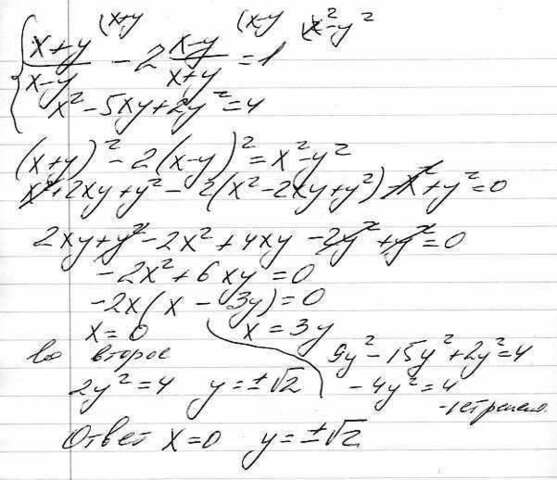 (x+y (x-y x²-y²
{ (x+y)/(x-y) - 2 (x-y)/(x+y) = 1
x² - 5xy + 2y² = 4
(x+y)² - 2(x-y)² = x²-y²
x² + 2xy + y² - 2(x² - 2xy + y²) - x² + y² = 0
2xy + y² - 2x² + 4xy - 2y² + y² = 0
-2x² + 6xy = 0
-2x(x - 3y) = 0
x = 0 x = 3y
во второе 9y² - 15y² + 2y² = 4
2y² = 4 y = ±√2 -4y² = 4
- нет решен.
Ответ x=0 y=±√2